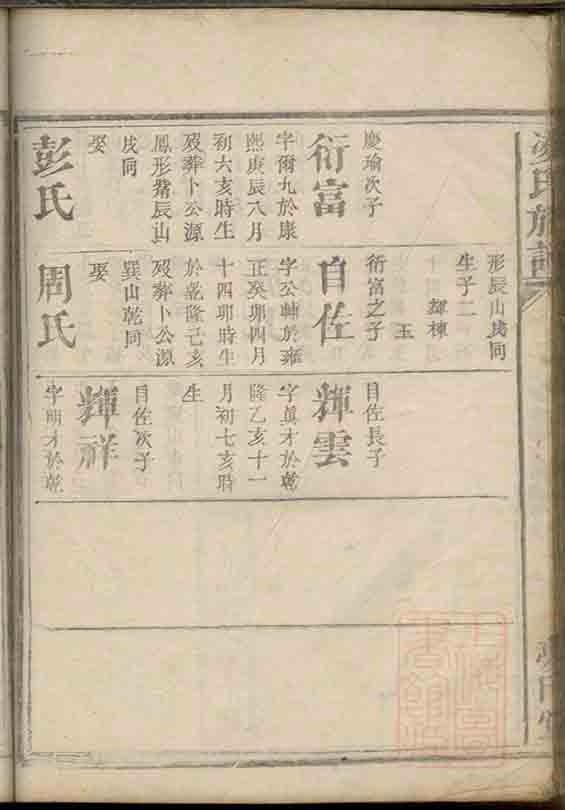 氏族譜
慶瑜次子
衍富
字爾九於康
熙庚辰八月
初六亥時生
歿葬卜公源
鳳形辰山
戌同
娶
彭氏
形辰山戌同
生子二
輝棟
玉
衍富之子
自佐
字公軸於雍
正癸卯四月
十四卯時生
於乾隆己亥
歿葬卜公源
巽山乾同
娶
周氏
自佐長子
輝雲
字眞才於乾
隆乙亥十一
月初七亥時
生
自佐次子
輝祥
字明才於乾